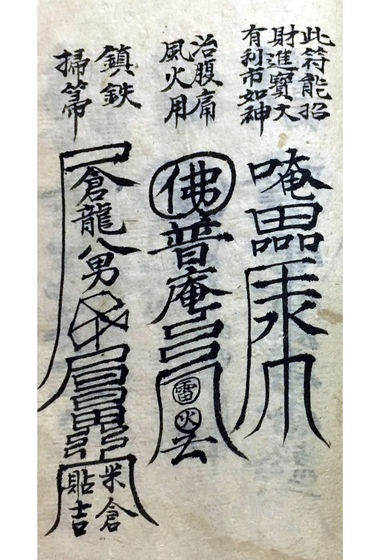 此符能招
財進寶大
有利市如神
唵
治腹痛
風火用
佛普庵
雷火
鎮鉄
掃箒
倉龍八男
米倉
貼吉